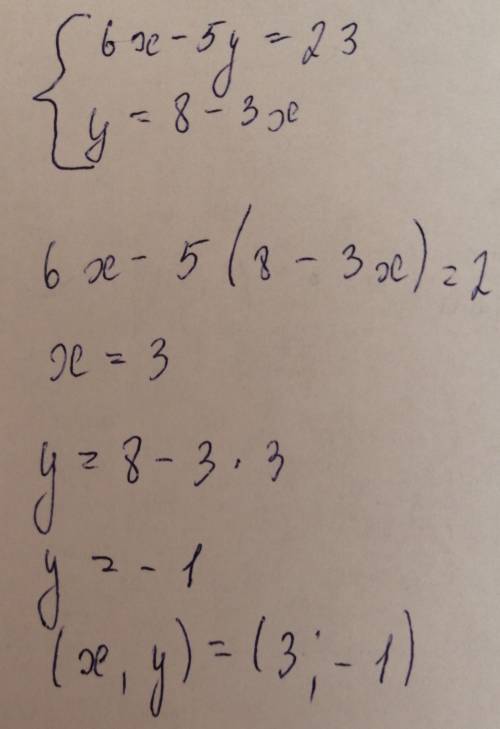 6x - 5y = 23
y = 8 - 3x
6x - 5(8 - 3x) = 2
x = 3
y = 8 - 3 · 3
y = - 1
(x, y) = (3; - 1)